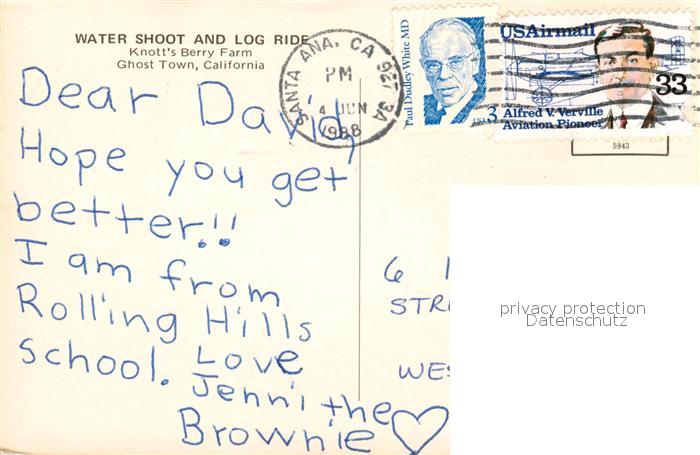 WATER SHOOT AND LOG RIDE
Knott's Berry Farm
Ghost Town, California
Dear David,
Hope you get
better!!
I am from
Rolling Hills
School. Love
Jenni the
Brownie
SANTA ANA, CA 927 3A
PM
4 JUN
1988
Paul Dudley White MD
USA 3
USAirmail
33
Alfred V. Verville
Aviation Pioneer
5943
6
STR
WES
privacy protection
Datenschutz